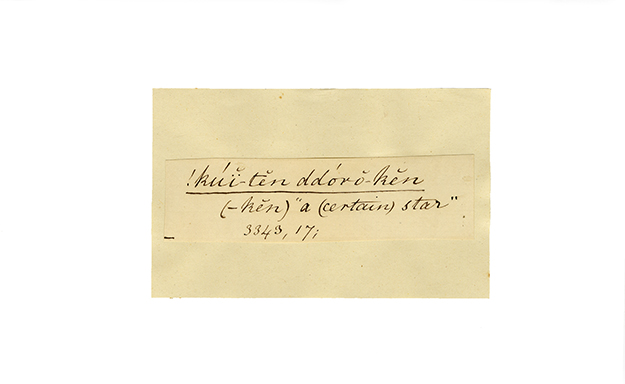 !kúï-tĕn ddórŏ-kĕn
(-kĕn) "a (certain) star"
3343, 17;